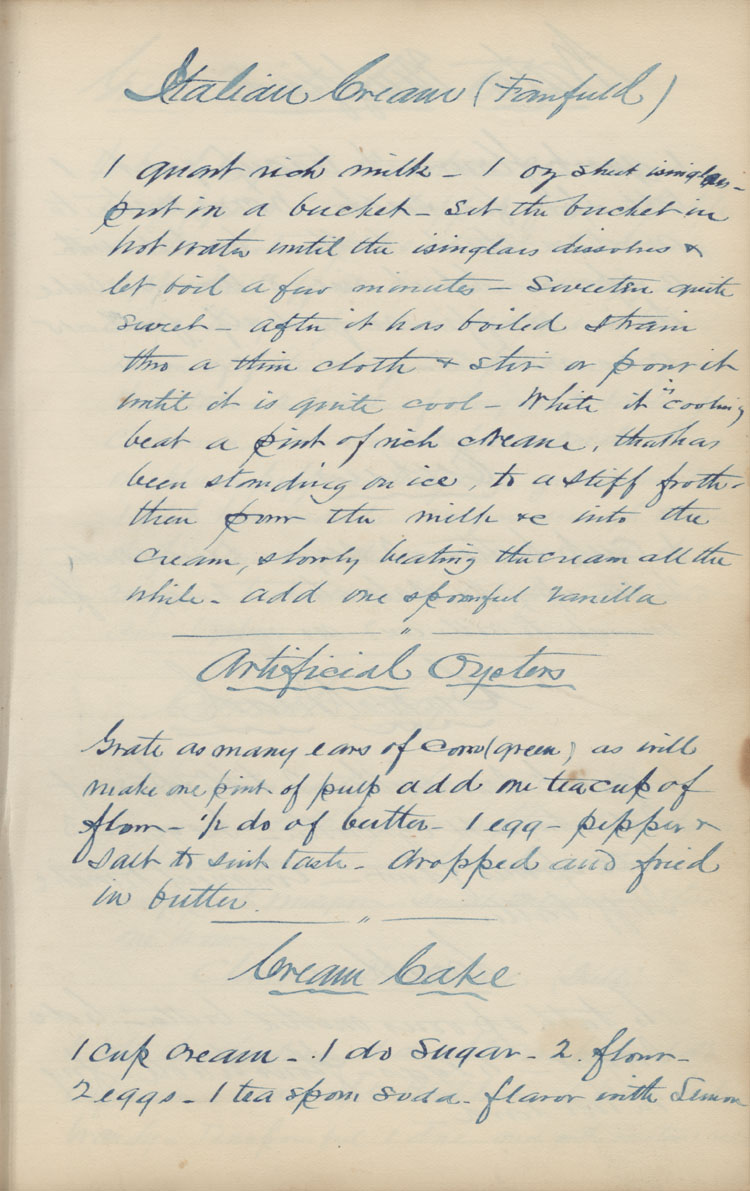 Italian Cream (Fairfield)
1 quart rich milk - 1 oz sheet isinglass -
put in a bucket - Set the bucket in
hot water until the isinglass dissolves &
let boil a few minutes - Sweeten quite
sweet - after it has boiled strain
thro a thin cloth & stir or pour it
until it is quite cool - While it is cooling
beat a pint of rich cream, that has
been standing on ice, to a stiff froth -
then pour the milk &c into the
cream, slowly beating the cream all the
while - add one spoonful vanilla
Artificial Oysters
Grate as many ears of corn (green) as will
make one pint of pulp add one teacup of
flour - 1/2 do of butter - 1 egg - pepper &
salt to suit taste - dropped and fried
in butter.
Cream Cake
1 cup cream - 1 do sugar - 2 . flour -
2 eggs - 1 tea spoon soda - flavor with Lemon